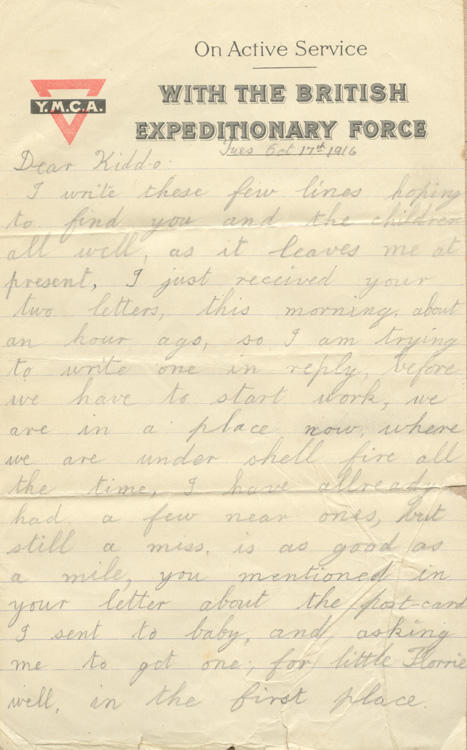 On Active Service
WITH THE BRITISH
EXPEDITIONARY FORCE
Y.M.C.A.
Tues Oct 17th 1916
Dear Kiddo.
I write these few lines hoping
to find you and the children
all well, as it leaves me at
present, I just received your
two letters, this morning. about
an hour ago, so I am trying
to write one in reply, before
we have to start work, we
are in a place now, where
we are under shell fire all
the time, I have allready
had a few near ones, but
still a miss. is as good as
a mile, you mentioned in
your letter about the post-card
I sent to baby, and, asking
me to get one, for little Florrie
well, in the first place.